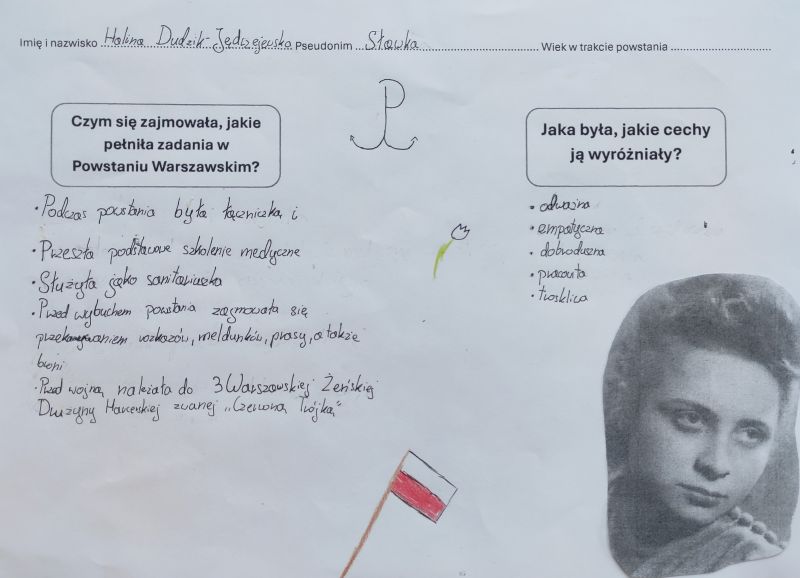 Imię i nazwisko Halina Dudzik-Jędrzejewska Pseudonim Sławka Wiek w trakcie powstania
Czym się zajmowała, jakie
pełniła zadania w
Powstaniu Warszawskim?
• Podczas powstania była łączniczką i
• Przeszła podstawowe szkolenie medyczne
• Służyła jako sanitariuszka
• Przed wybuchem powstania zajmowała się
przekazywaniem rozkazów, meldunków, prasy, a także
broni
• Przed wojną należała do 3 Warszawskiej Żeńskiej
Drużyny Harcerskiej zwanej „Czerwoną Trójką"
Jaka była, jakie cechy
ją wyróżniały?
• odważna
• empatyczna
• dobroduszna
• pracowita
• troskliwa